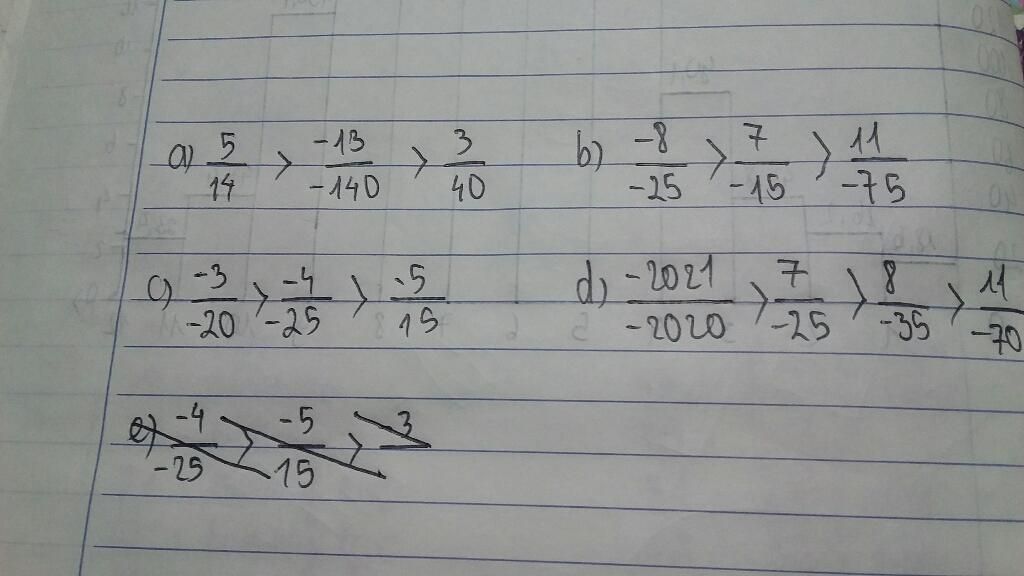 a) 5/14 > -13/-140 > 3/40 b) -8/-25 > 7/-15 > 11/-75
c) -3/-20 > -4/-25 > -5/15 d) -2021/-2020 > 7/-25 > 8/-35 > 11/-70
e) -4/-25 > -5/15 > -3/